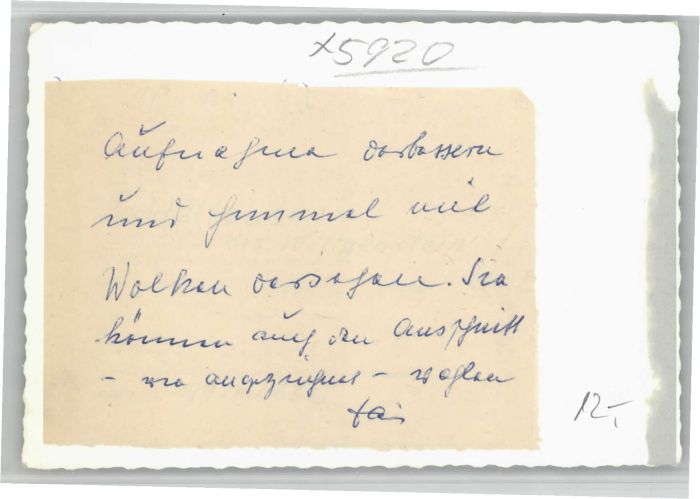 x5920
Aufnahme verbessern
und Himmel mit
Wolken versehen. Sie
können auch den Ausschnitt
– wie angezeichnet – wählen
12,-